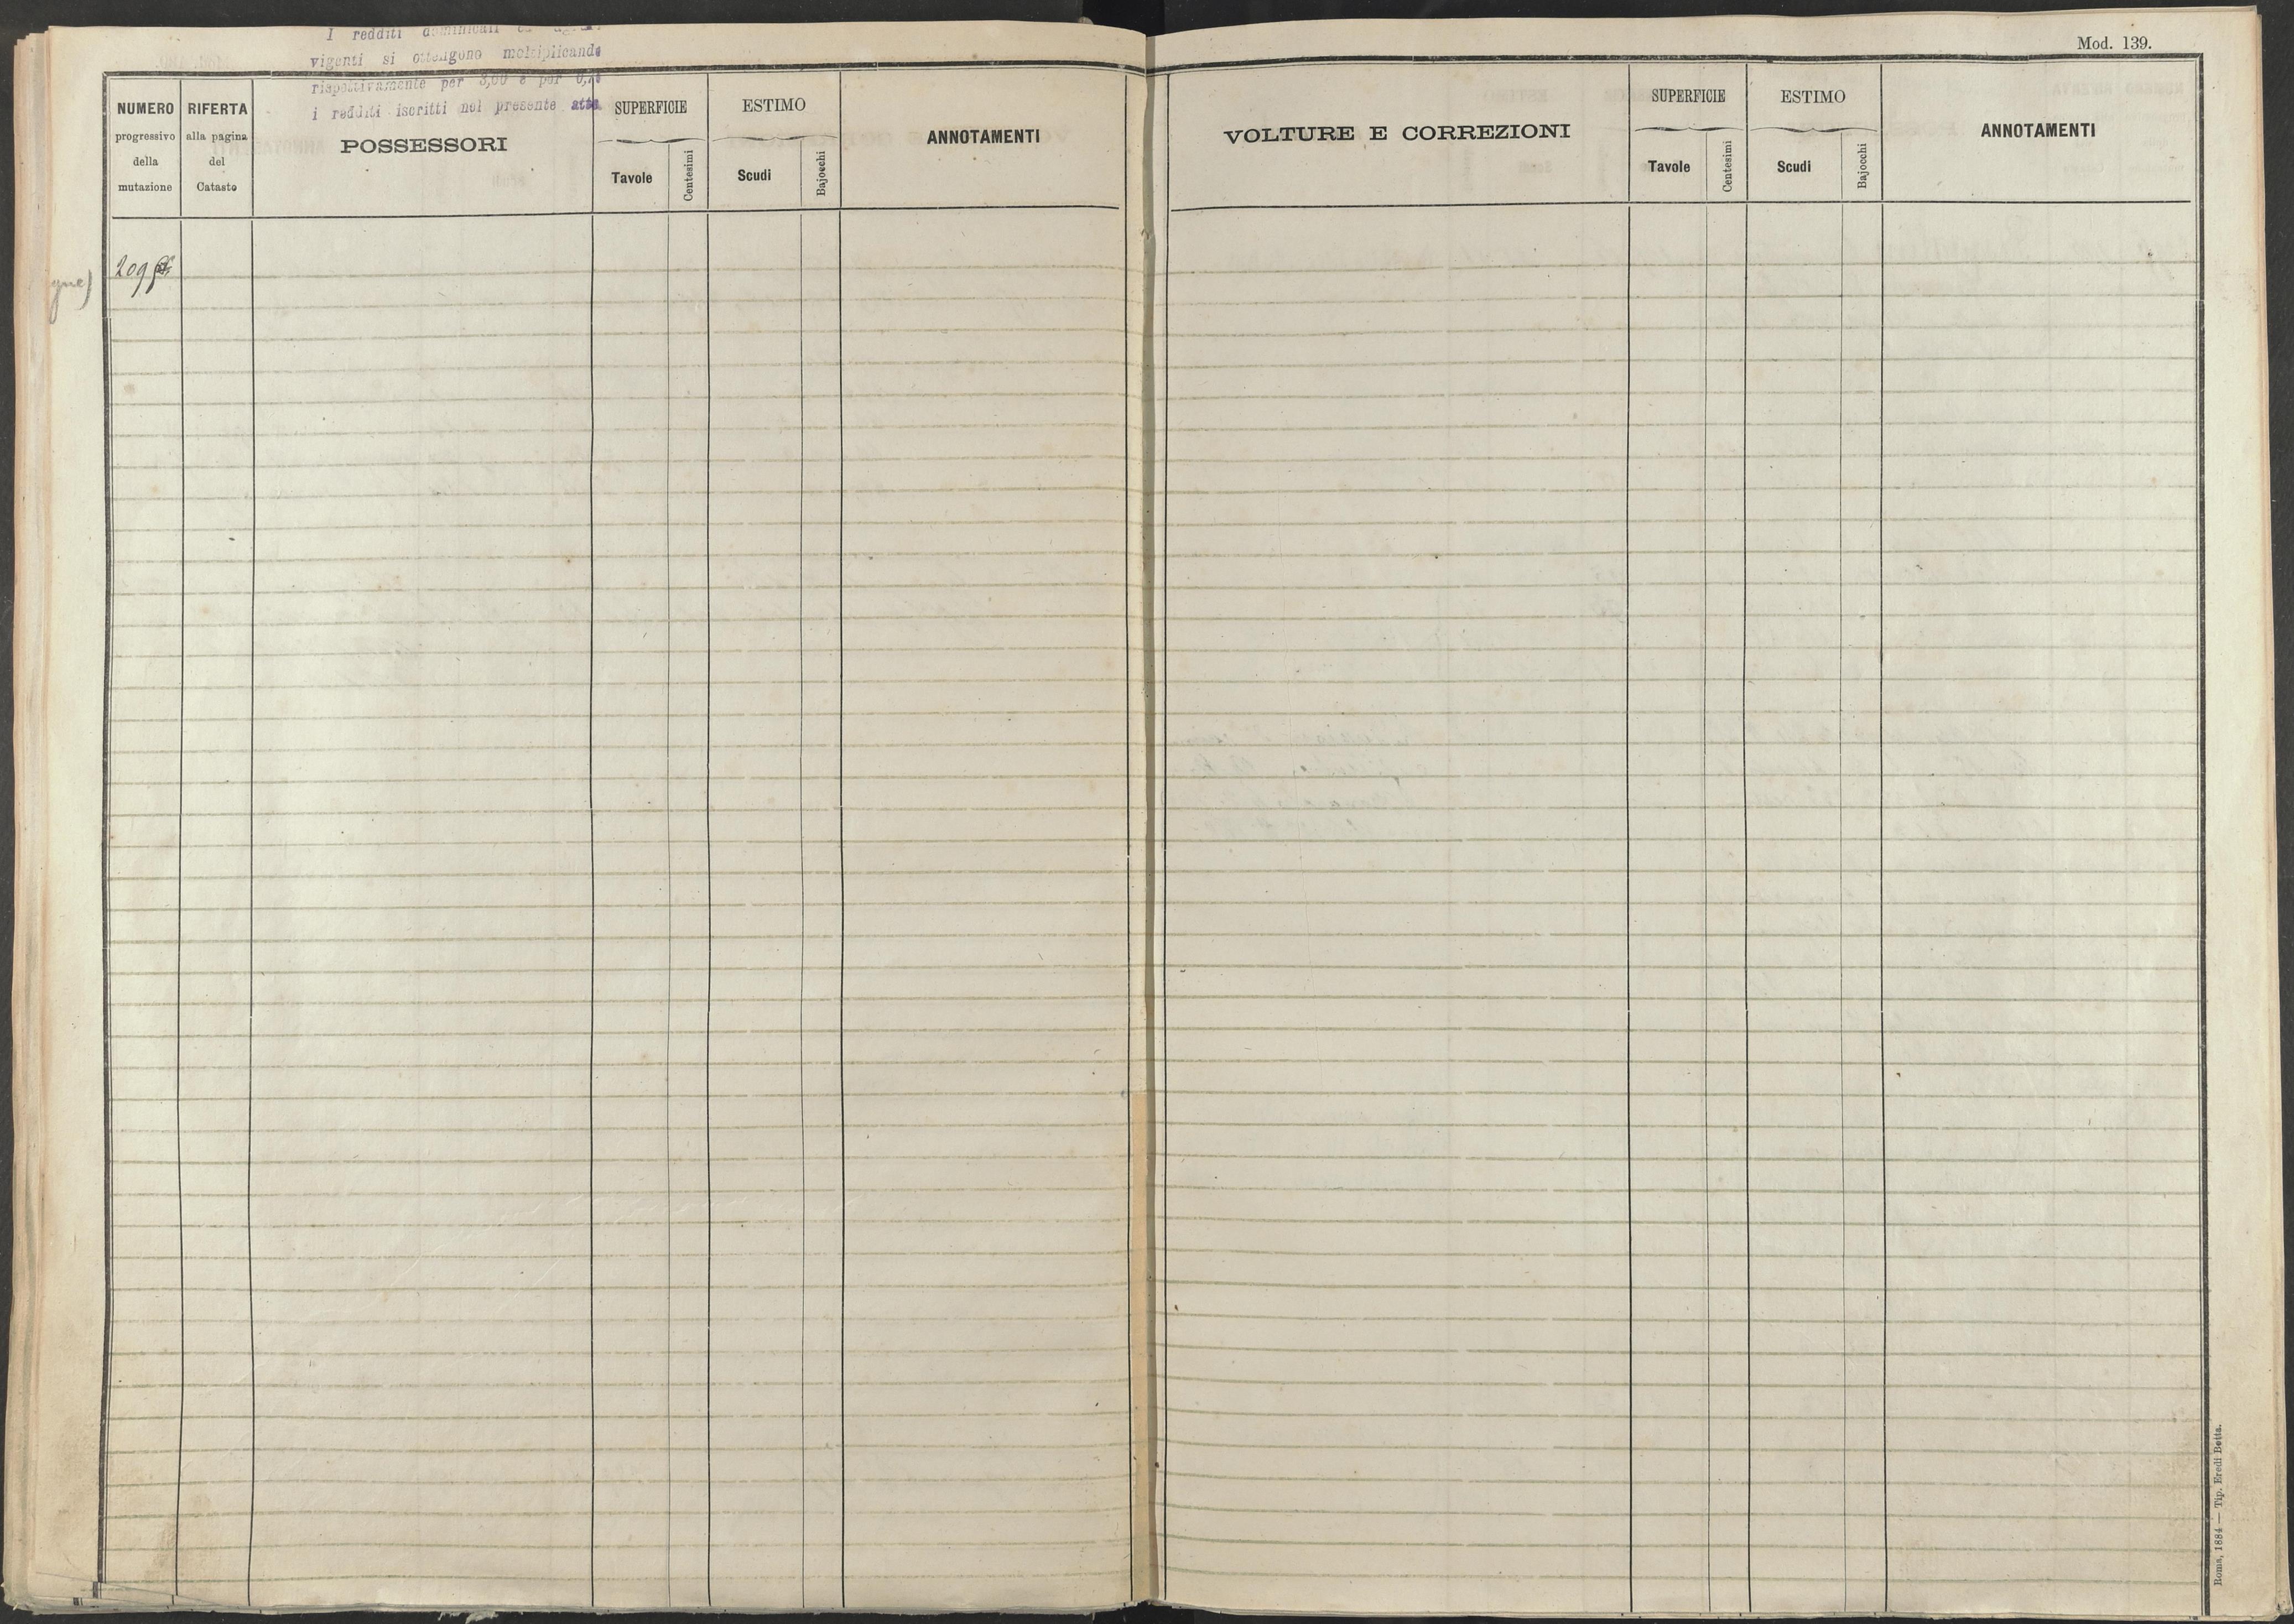 I redditi dominicali
vigenti si ottengono moltiplicando
rispettivamente per 3,00 e per
i redditi iscritti nel presente atto
Mod. 139.
NUMERO
progressivo
della
mutazione
RIFERTA
alla pagina
del
Catasto
POSSESSORI
SUPERFICIE
Tavole
Centesimi
ESTIMO
Scudi
Bajocchi
ANNOTAMENTI
VOLTURE E CORREZIONI
SUPERFICIE
Tavole
Centesimi
ESTIMO
Scudi
Bajocchi
ANNOTAMENTI
209
gue)
Roma, 1884 — Tip. Eredi Botta.